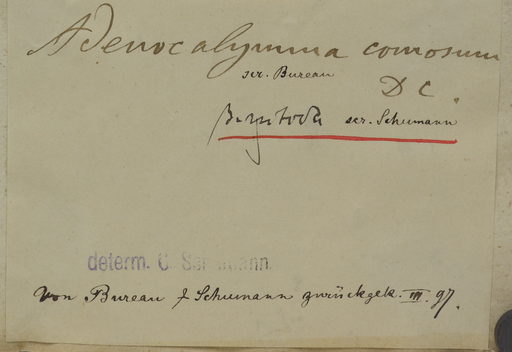 Adenocalymma comosum
scr. Bureau
DC.
scr. Schumann
determ. C. Schumann.
von Bureau & Schumann zurückgek. III. 97.